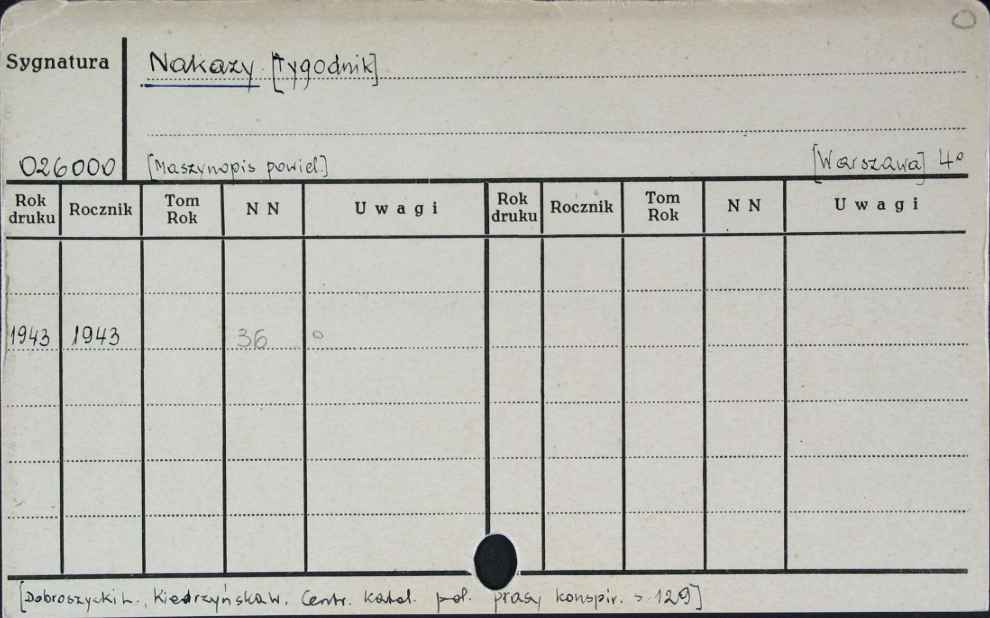 Sygnatura Nakazy [Tygodnik]
026000 [Maszynopis powiel.] [Warszawa] 4°
Rok druku Rocznik Tom Rok N N Uwagi Rok druku Rocznik Tom Rok N N Uwagi
1943 1943 36 o
[Dobroszycki L., Kiedrzyńska W. Centr. katal. pol. prasy konspir. s. 129]